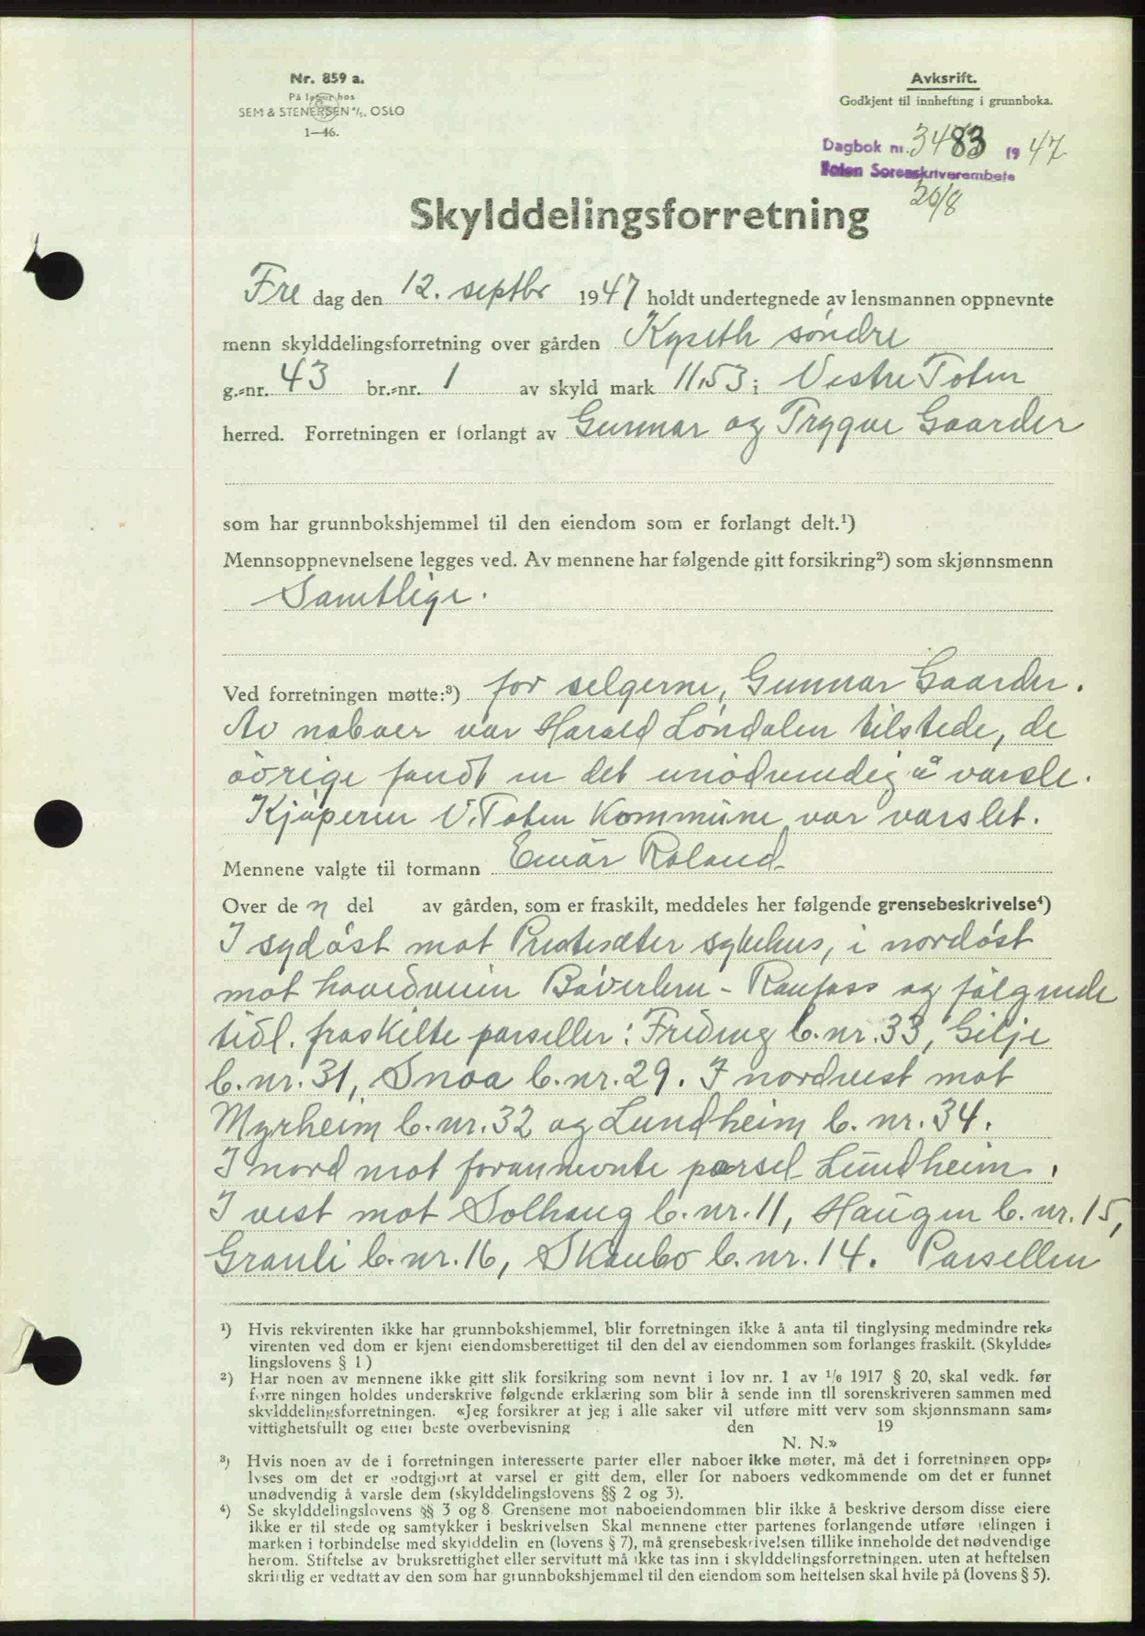 Nr. 859 a.
På lager hos
SEM & STENERSEN A/S. OSLO
1—46.
Avksrift.
Godkjent til innhefting i grunnboka.
Dagbok nr. 3483 1947
Toten Sorenskriverembete
20/8
Skylddelingsforretning
Fre dag den 12. septbr 1947 holdt undertegnede av lensmannen oppnevnte
menn skylddelingsforretning over gården Kyseth söndre
g.-nr. 43 br.-nr. 1 av skyld mark 11,53 i Vestre Toten
herred. Forretningen er forlangt av Gunnar og Trygve Gaarder
som har grunnbokshjemmel til den eiendom som er forlangt delt.¹)
Mennsoppnevnelsene legges ved. Av mennene har følgende gitt forsikring²) som skjønnsmenn
Samtlige.
Ved forretningen møtte:³) for selgerne, Gunnar Gaarder.
Av naboer var Harald Löndalen tilstede, de
övrige fandt en det unödvendig å varsle.
Kjöperen V. Toten Kommune var varslet.
Mennene valgte til formann Einar Roland
Over de n del av gården, som er fraskilt, meddeles her følgende grensebeskrivelse⁴)
I sydöst mot Prestesæter sykehus, i nordöst
mot hovedveien Böverbru - Raufoss og fölgende
tidl. fraskilte parseller: Fridung b.nr. 33, Gilje
b.nr. 31, Snoa b.nr. 29. I nordvest mot
Myrheim b.nr. 32 og Lundheim b.nr. 34.
I nord mot forannevnte parsel Lundheim.
I vest mot Solhaug b.nr. 11, Haugen b.nr. 15,
Granli b.nr. 16, Skaubo b.nr. 14. Parsellen
¹) Hvis rekvirenten ikke har grunnbokshjemmel, blir forretningen ikke å anta til tinglysing medmindre rek-
virenten ved dom er kjent eiendomsberettiget til den del av eiendommen som forlanges fraskilt. (Skyldde-
lingslovens § 1)
²) Har noen av mennene ikke gitt slik forsikring som nevnt i lov nr. 1 av 1/6 1917 § 20, skal vedk. før
forretningen holdes underskrive følgende erklæring som blir å sende inn til sorenskriveren sammen med
skylddelingsforretningen. «Jeg forsikrer at jeg i alle saker vil utføre mitt verv som skjønnsmann sam-
vittighetsfullt og etter beste overbevisning den 19
N. N.»
³) Hvis noen av de i forretningen interesserte parter eller naboer ikke møter, må det i forretningen opp-
lyses om det er godtgjort at varsel er gitt dem, eller for naboers vedkommende om det er funnet
unødvendig å varsle dem (skylddelingslovens §§ 2 og 3).
⁴) Se skylddelingslovens §§ 3 og 8. Grensene mot naboeiendommen blir ikke å beskrive dersom disse eiere
ikke er til stede og samtykker i beskrivelsen Skal mennene etter partenes forlangende utføre delingen i
marken i forbindelse med skylddelin en (lovens § 7), må grensebeskrivelsen tillike inneholde det nødvendige
herom. Stiftelse av bruksrettighet eller servitutt må ikke tas inn i skylddelingsforretningen. uten at heftelsen
skriftlig er vedtatt av den som har grunnbokshjemmel til den eiendom som heftelsen skal hvile på (lovens § 5).